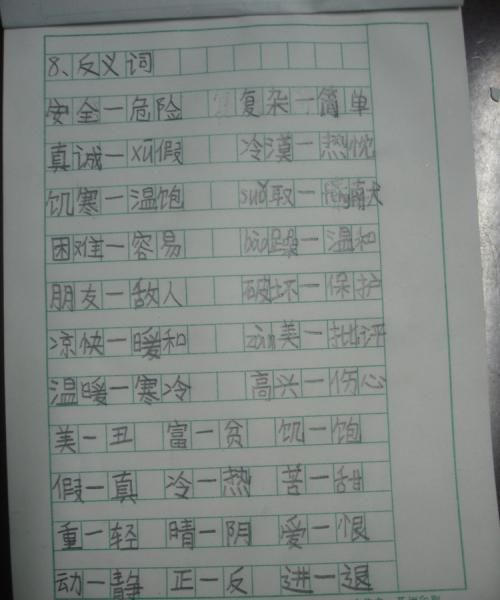 8、反义词
安全一危险 复杂一简单
真诚一xū假 冷漠一热忱
饥寒一温饱 suǒ取一献
困难一容易 bào躁一温和
朋友一敌人 破坏一保护
凉快一暖和 zàn美一批评
温暖一寒冷 高兴一伤心
美一丑 富一贫 饥一饱
假一真 冷一热 苦一甜
重一轻 晴一阴 爱一恨
动一静 正一反 进一退